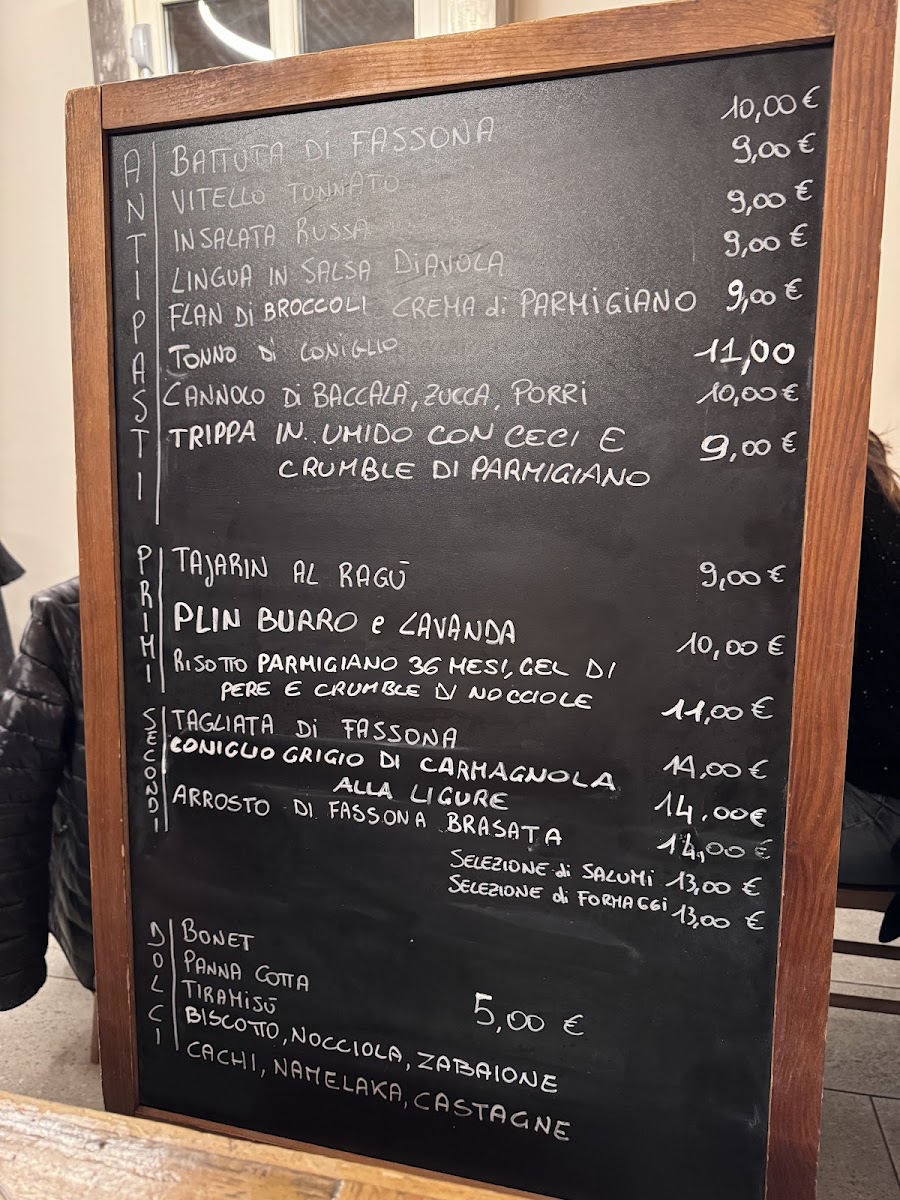 ANTIPASTI
BATTUTA Di FASSONA 10,00 €
VITELLO TONNATO 9,00 €
INSALATA RUSSA 9,00 €
LINGUA IN SALSA DiAVOLA 9,00 €
FLAN Di BROCCOLI CREMA di PARMiGiANO 9,00 €
TONNO Di CONIGLIO 11,00
CANNOLO Di BACCALÀ, ZUCCA, PORRI 10,00 €
TRIPPA IN UMIDO CON CECI E 9,00 €
CRUMBLE DI PARMIGIANO
PRIMI
TAJARIN AL RAGÙ 9,00 €
PLIN BURRO e LAVANDA 10,00 €
RISOTTO PARMIGIANO 36 MESI, GEL DI
PERE E CRUMBLE DI NOCCIOLE 11,00 €
SECONDI
TAGLIATA Di FASSONA 14,00 €
CONIGLIO GRIGIO DI CARMAGNOLA
ALLA LIGURE 14,00 €
ARROSTO Di FASSONA BRASATA 14,00 €
SELEZIONE di SALUMI 13,00 €
SELEZIONE di FORMAGGI 13,00 €
DOLCI
BONET
PANNA COTTA
TIRAMISÙ 5,00 €
BISCOTTO, NOCCIOLA, ZABAIONE
CACHI, NAMELAKA, CASTAGNE